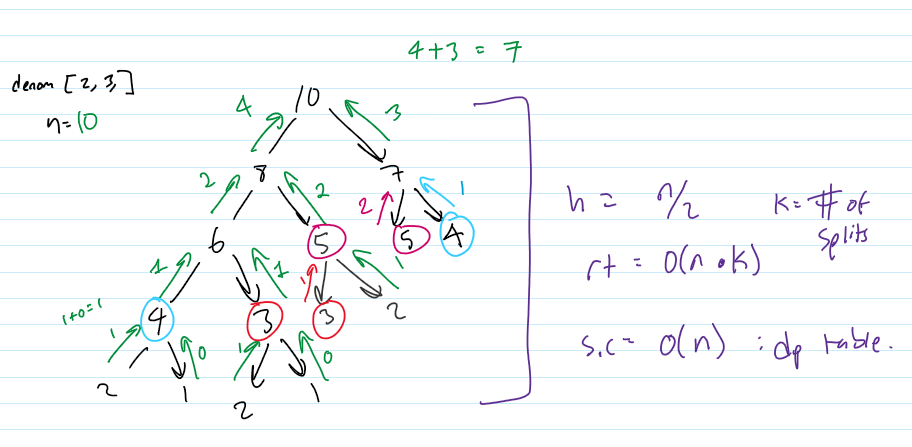 4+3 = 7
denom [2, 3,]
n=10
10
4
3
8
7
2
2
2
1
6
5
5
4
1
1
1
1
1+0=1
4
3
3
2
1
0
1
0
2
1
2
1
h = n/2
k = # of
splits
rt = O(n • k)
s.c = O(n) : dp table.